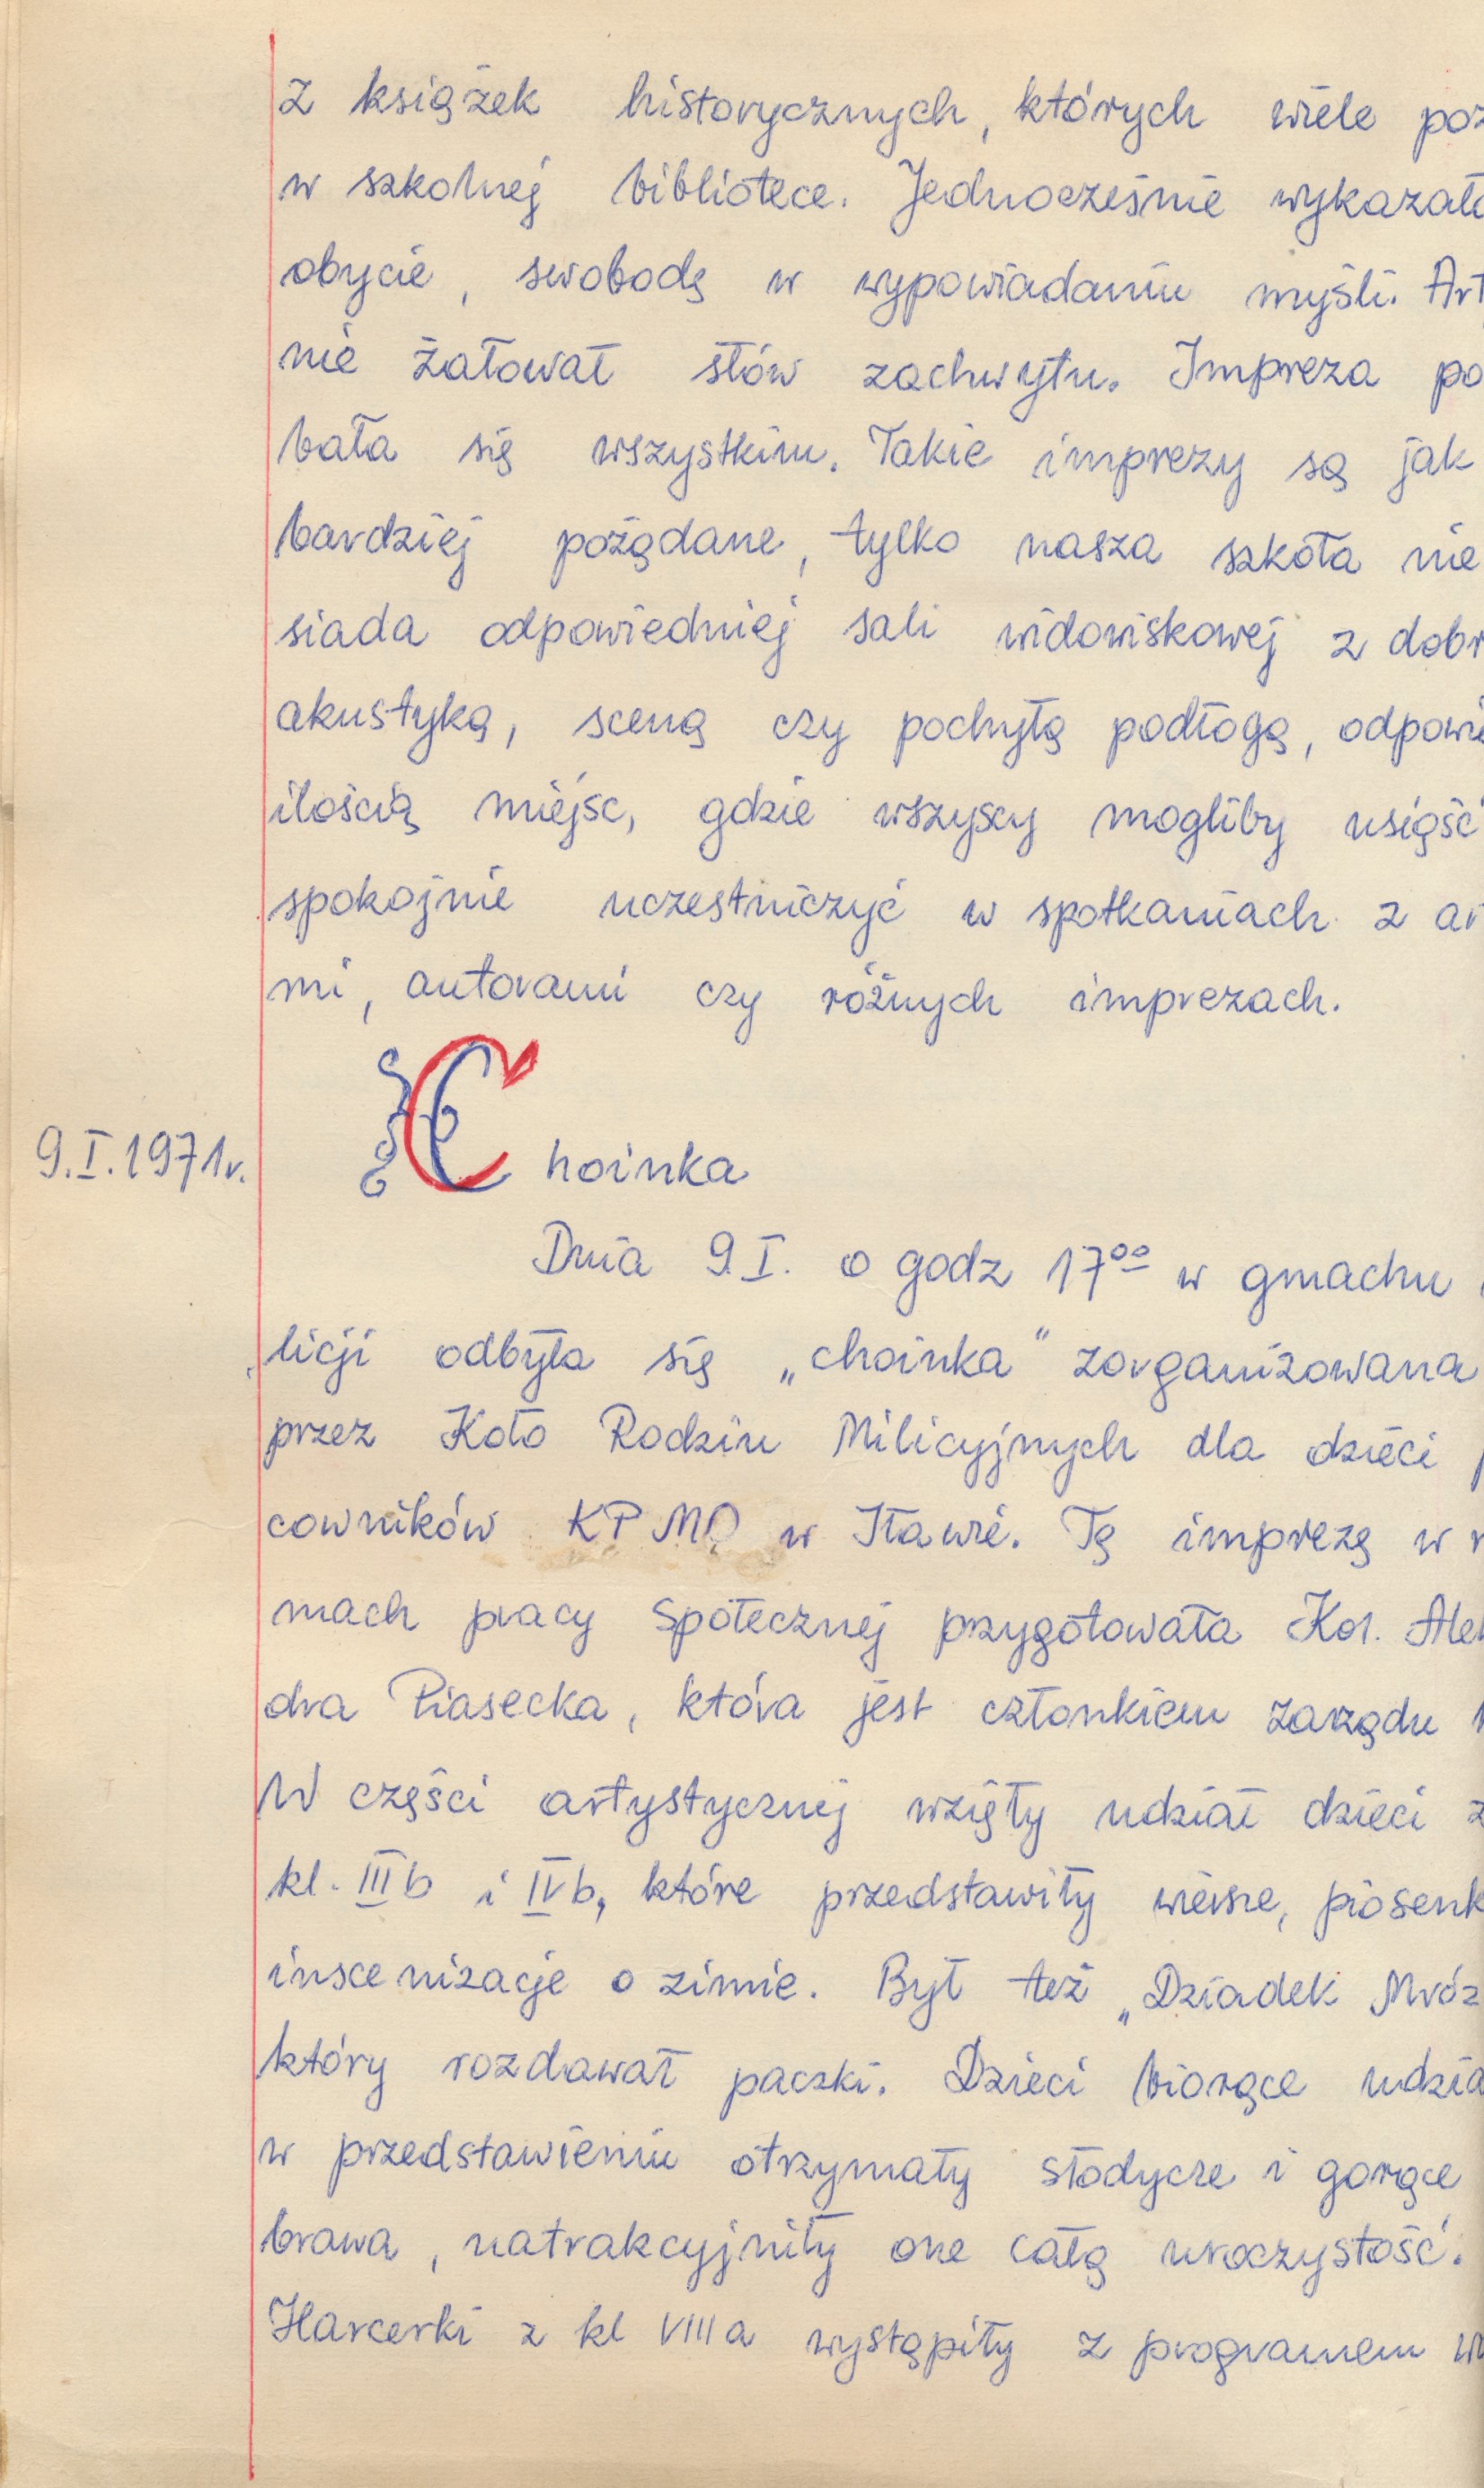 z książek historycznych, których wiele poz
w szkolnej bibliotece. Jednocześnie wykazał
obycie, swobodę w wypowiadaniu myśli. Art
nie żałował słów zachwytu. Impreza po
bała się wszystkim. Takie imprezy są jak
bardziej pożądane, tylko nasza szkoła nie
siada odpowiedniej sali widowiskowej z dobr
akustyką, sceną czy pochyłą podłogą, odpowie
ilością miejsc, gdzie wszyscy mogliby usiąść
spokojnie uczestniczyć w spotkaniach z ar
mi, autorami czy różnych imprezach.
9.I.1971r. Choinka
Dnia 9.I. o godz 17⁰⁰ w gmachu
licji odbyła się „choinka" zorganizowana
przez Koło Rodzin Milicyjnych dla dzieci
cowników KP MO w Iławie. Tę imprezę w r
mach pracy społecznej przygotowała Kol. Alek
dra Piasecka, która jest członkiem zarządu
W części artystycznej wzięły udział dzieci z
kl. III b i IV b, które przedstawiły wiersze, piosenk
inscenizacje o zimie. Był też „Dziadek Mróz
który rozdawał paczki. Dzieci biorące udzia
w przedstawieniu otrzymały słodycze i gorące
brawa, uatrakcyjniły one całą uroczystość.
Harcerki z kl VIII a wystąpiły z programem w